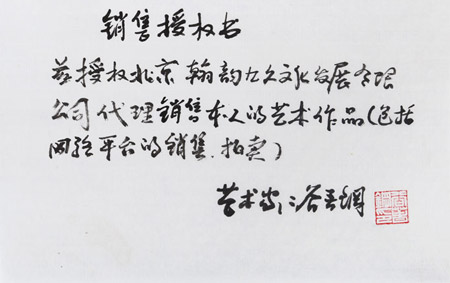 销售授权书
兹授权北京翰韵九久文化发展有限
公司代理销售本人的艺术作品(包括
网络平台的销售、拍卖)
艺术家:谷吾钢